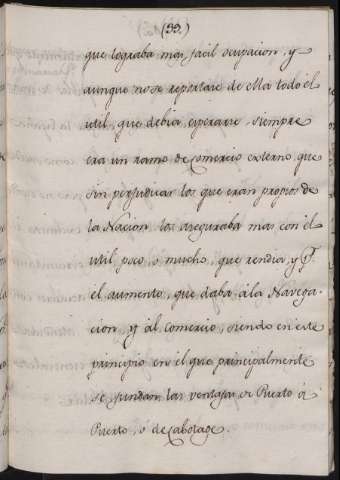 (99.)
que lograba mas facil ocupacion, y
aunque no se reportare de ella todo el
util, que debia esperarse, siempre
era un ramo de Comercio externo que
sin perjudicar los que eran propios de
la Nacion los aseguraba mas con el
util poco ò mucho, que rendia, y p.
el aumento, que daba à la Navega-
cion, y al comercio, siendo en este
principio en el que principalmente
se fundan las ventajas de Puerto à
Puerto, ò de Cabotage.